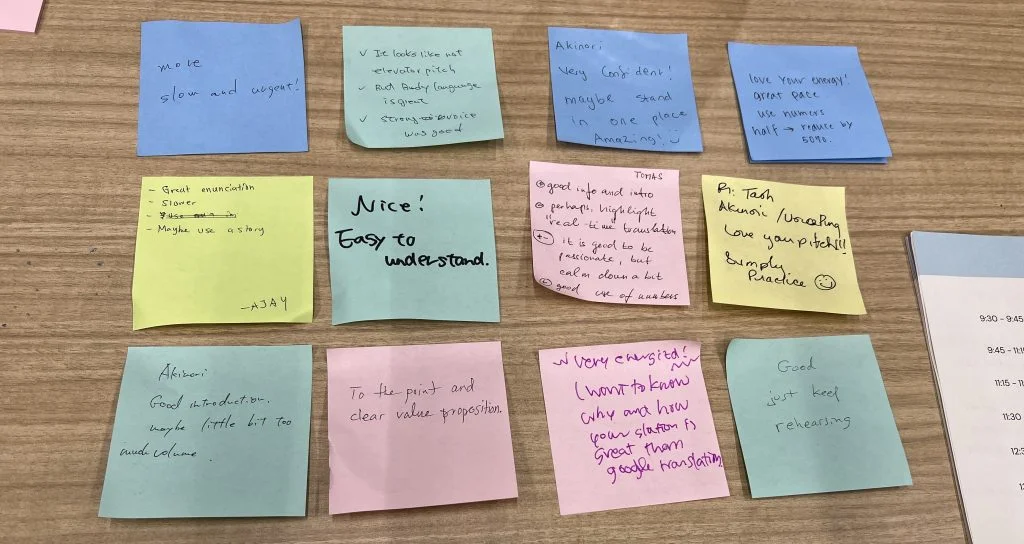 move
slow and urgent!
✓ It looks like not
elevator pitch
✓ But Body language
is great
✓ strong voice
was good
Akinori
Very Confident!
maybe stand
in one place
Amazing! ☺
love your energy!
great pace
use numers
half → reduce by
50%.
- Great enunciation
- Slower
- Maybe use a story
- AJAY
Nice!
Easy to
understand.
TOMAS
⊕ good info and intro
⊕ perhaps, highlight
"real-time translation
it is good to be
passionate, but
calm down a bit
⊕ good use of numbers
Tash
Akinori /VoicePing
Love your pitch!!!
Simply
Practice ☺
Akinori
Good introduction.
maybe little bit too
much volume.
To the point and
clear value proposition.
Very energized!
I want to know
why and how
your slation is
great than
google translation
Good
just keep
rehearsing
9:30 - 9:45
9:45 - 11:
11:15 - 11
11:30
12: